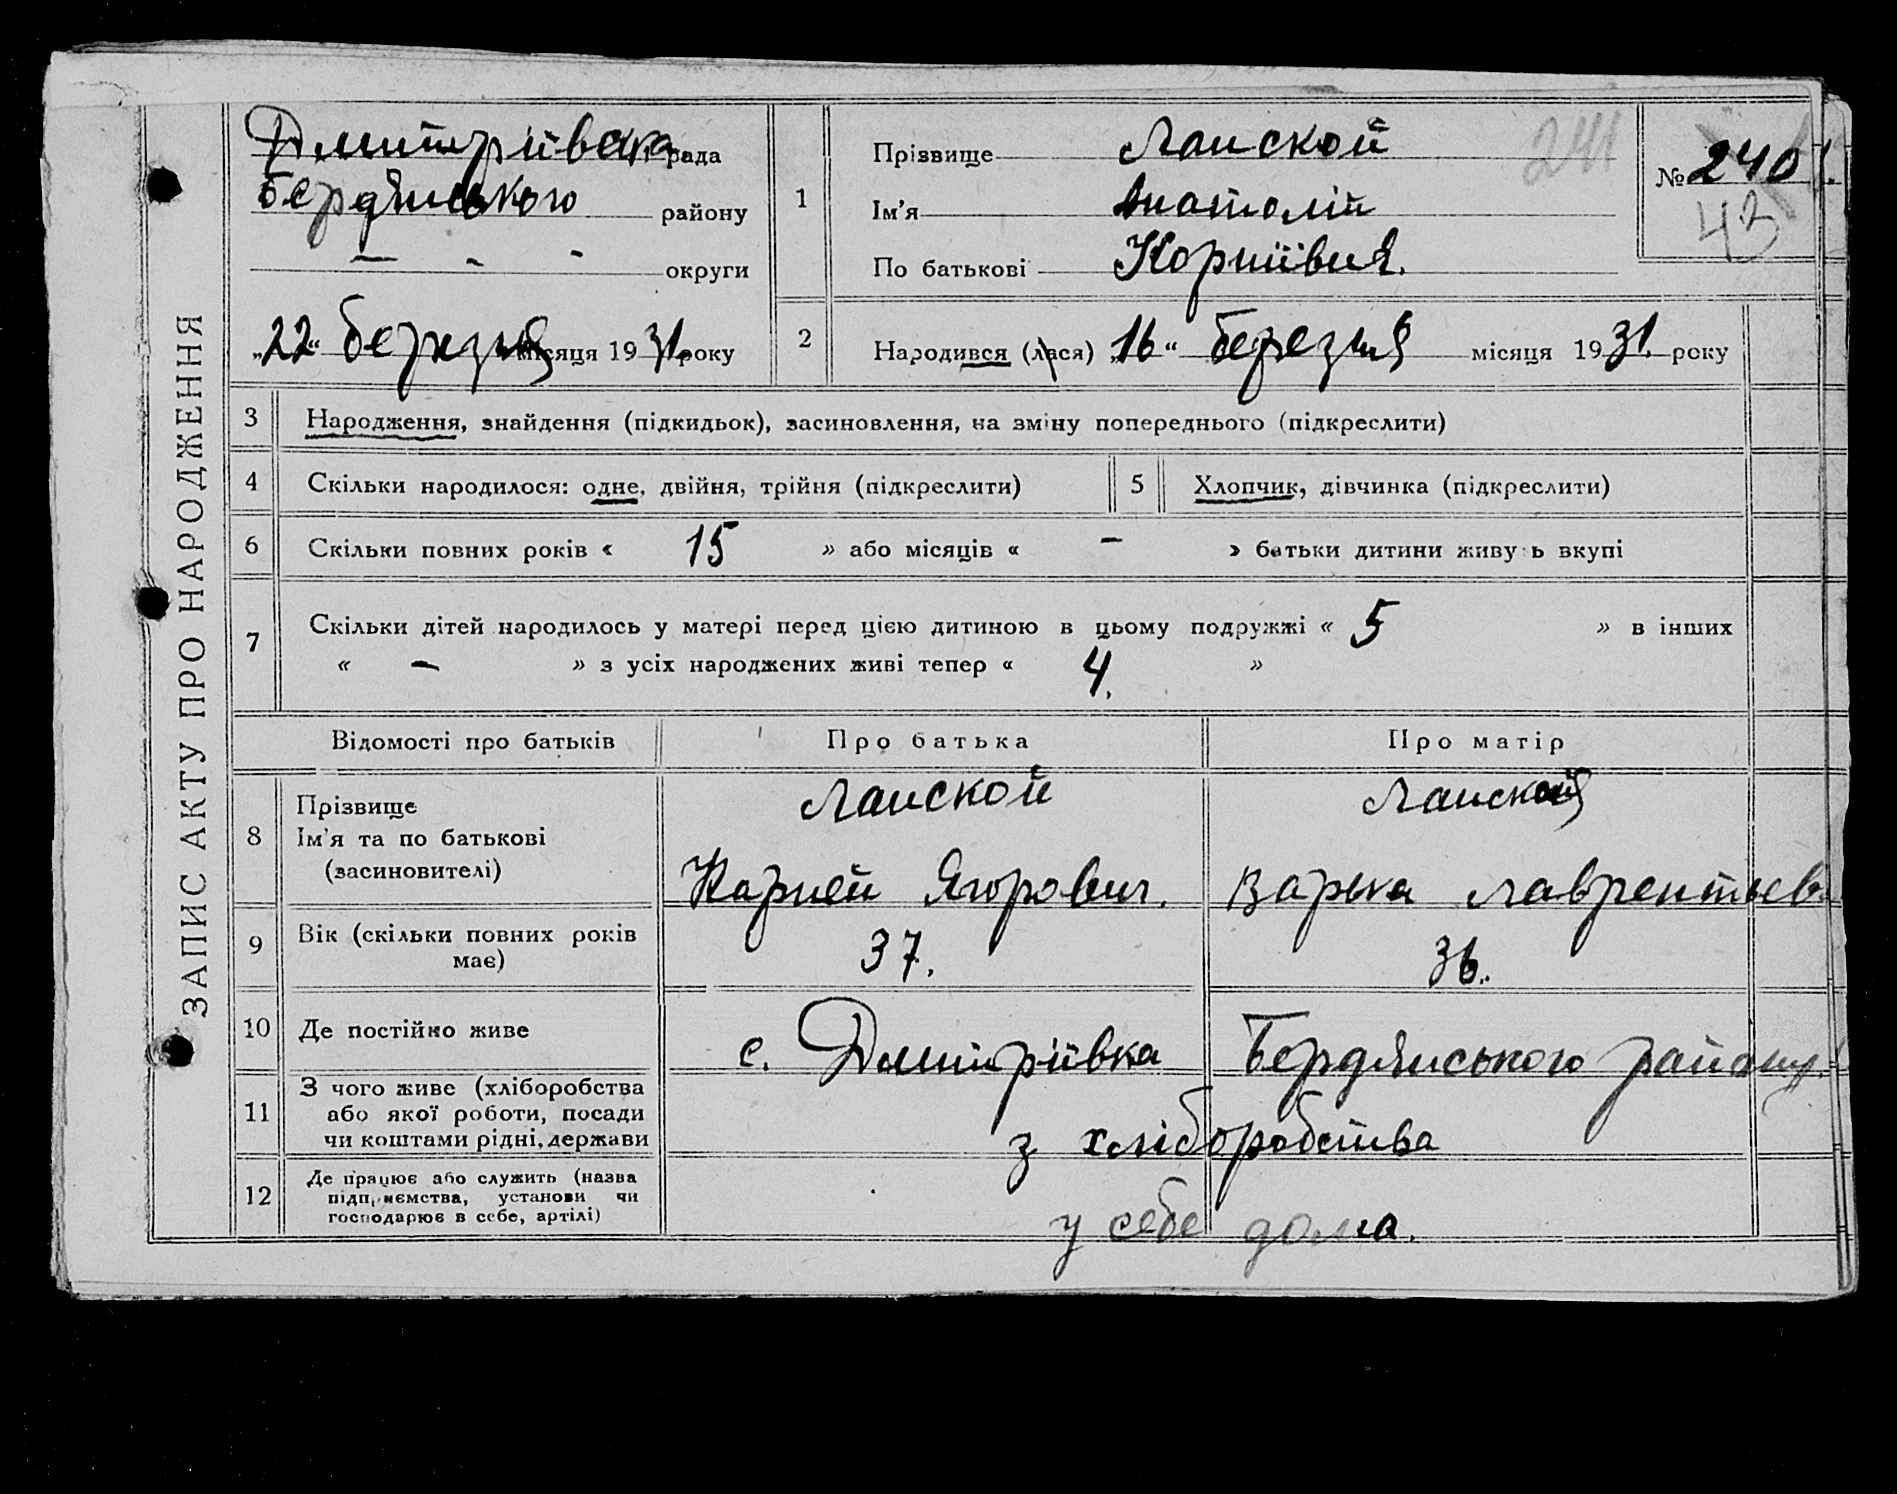 ЗАПИС АКТУ ПРО НАРОДЖЕННЯ
Дмитріївська рада
Бердянського району
— - - округи
„22“ березня місяця 1931. року
1
Прізвище Ланской
Ім'я Анатолій
По батькові Корніївич.
241
№ 240
43
2
Народився (лася) „16“ березня місяця 1931. року
3 Народження, знайдення (підкидьок), засиновлення, на зміну попереднього (підкреслити)
4 Скільки народилося: одне, двійня, трійня (підкреслити) 5 Хлопчик, дівчинка (підкреслити)
6 Скільки повних років « 15 » або місяців « – » батьки дитини живуть вкупі
7 Скільки дітей народилось у матері перед цією дитиною в цьому подружжі « 5 » в інших
« – » з усіх народжених живі тепер « 4. »
Відомості про батьків Про батька Про матір
8 Прізвище Ланской Ланская
Ім'я та по батькові
(засиновителі) Карней Ягорович. Варька Лаврентьев
9 Вік (скільки повних років
має) 37. 36.
10 Де постійно живе с. Дмитріівка Бердянського району.
11 З чого живе (хліборобства
або якої роботи, посади
чи коштами рідні, держави з хліборобства
12 Де працює або служить (назва
підприємства, установи чи
господарює в себе, артілі) у себе дома.